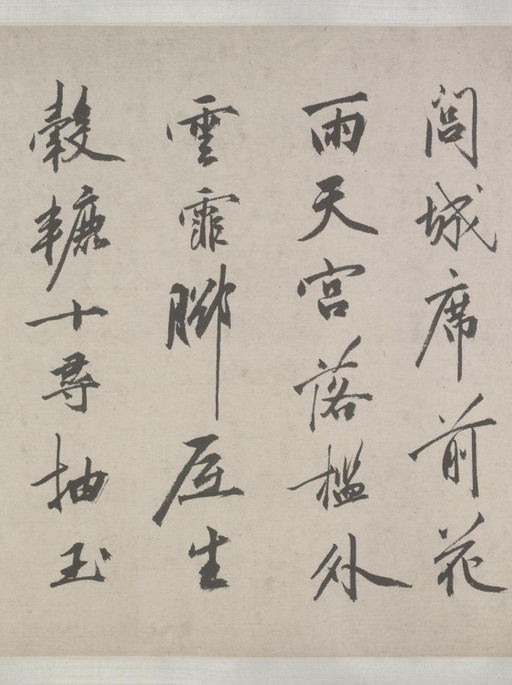 閭城席前花
雨天宮落檻外
雲霏腳底生
轂轆十尋抽玉